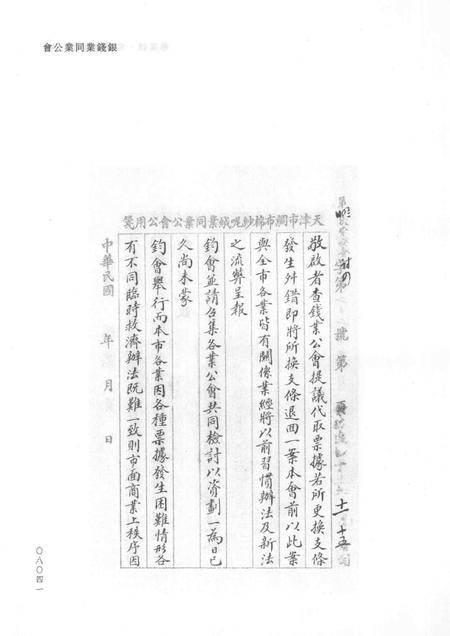 銀錢業同業公會
天津市綢布棉紗呢絨業同業公會公用箋
號 第
十一 十五
敬啟者查錢業公會提議代取票據若所更換支條
發生舛錯即將所換支條退回一案本會前以此案
與全市各業皆有關係業經將以前習慣辦法及新法
之流弊呈報
鈞會並請召集各業公會共同檢討以資劃一為日已
久尚未蒙
鈞會舉行而本市各業因各種票據發生困難情形各
有不同臨時救濟辦法既難一致則市面商業上秩序因
中華民國 年 月 日
〇八〇四一